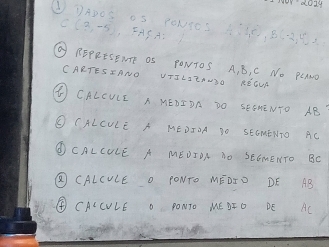 NOV-2024
① DADOS OS PONTOS
C(3,-5), FAÇA:
ⓐ REPRESENTE OS PONTOS A,B,C NO PLANO
CARTESIANO UTILIZANDO RÉGUA
ⓑ CALCULE A MEDIDA DO SEGMENTO AB
ⓒ CALCULE A MEDIDA DO SEGMENTO AC
ⓓ CALCULE A MEDIDA DO SEGMENTO BC
ⓔ CALCULE O PONTO MÉDIO DE AB
ⓕ CALCULE O PONTO MÉDIO DE AC